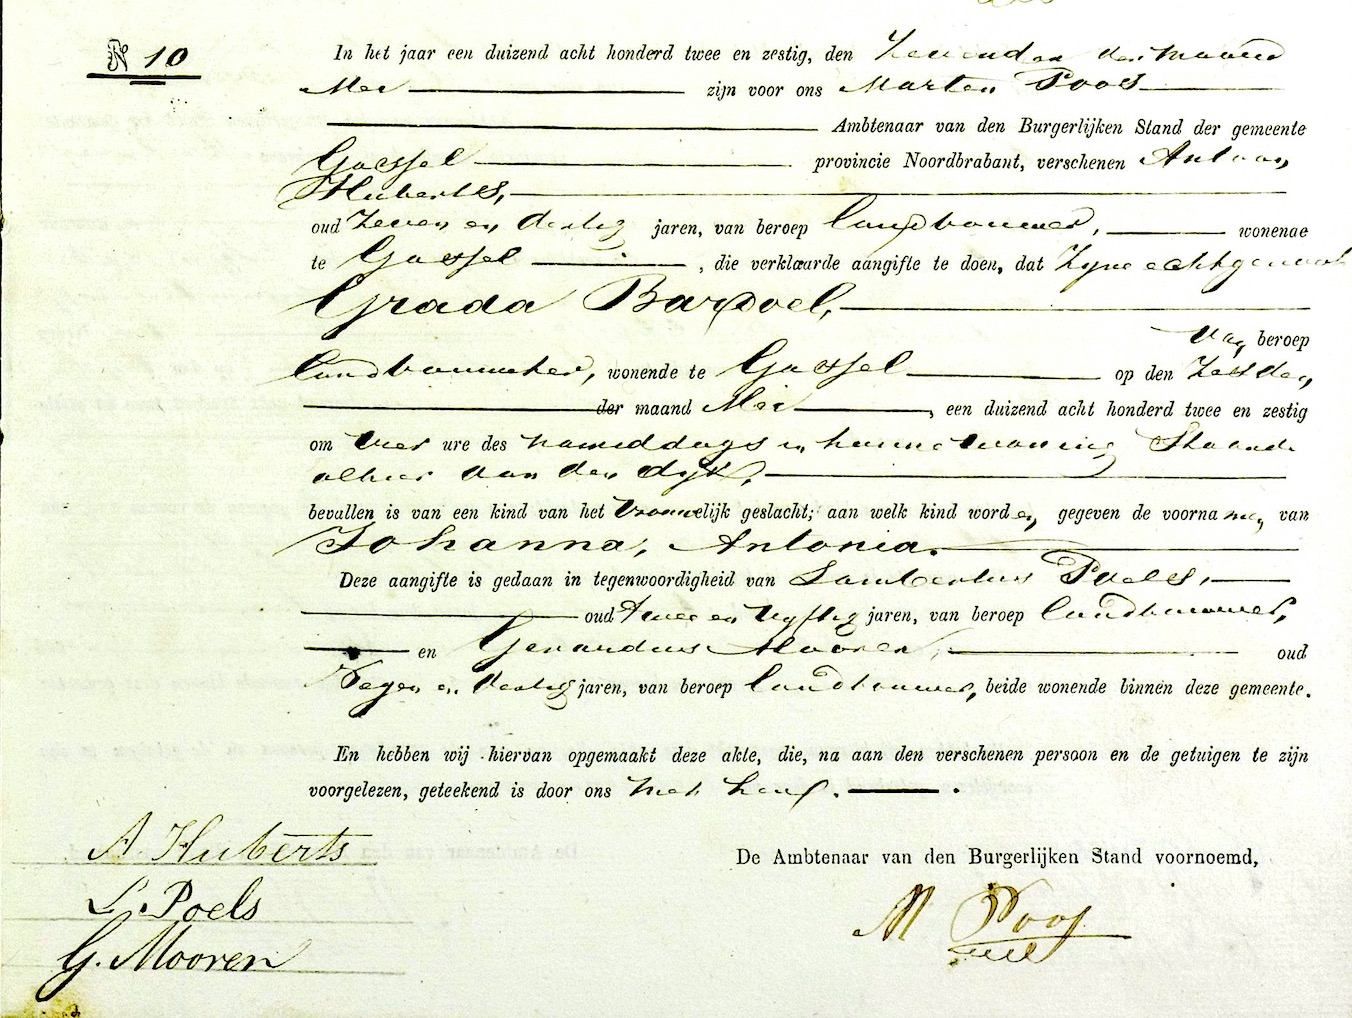 N 10
In het jaar een duizend acht honderd twee en zestig, den Zevenden der Maand
Mei zijn voor ons Marten Poos
Ambtenaar van den Burgerlijken Stand der gemeente
Gassel provincie Noordbrabant, verschenen Antoon
Huberts,
oud Zeven en dertig jaren, van beroep landbouwer, wonende
te Gassel, die verklaarde aangifte te doen, dat Zyne echtgenoot
Grada Barpoel,
van beroep
landbouwster, wonende te Gassel op den Zesden
der maand Mei, een duizend acht honderd twee en zestig
om vier ure des namiddags in hunne woning Staande
alhier aan den dyk,
bevallen is van een kind van het vrouwelijk geslacht; aan welk kind worden gegeven de voornamen van
Johanna, Antonia.
Deze aangifte is gedaan in tegenwoordigheid van Lambertus Poels,
oud twee en vyftig jaren, van beroep landbouwer,
en Gerardus Mooren, oud
Negen en dertig jaren, van beroep landbouwer, beide wonende binnen deze gemeente.
En hebben wij hiervan opgemaakt deze akte, die, na aan den verschenen persoon en de getuigen te zijn
voorgelezen, geteekend is door ons met hen.
A Huberts
De Ambtenaar van den Burgerlijken Stand voornoemd,
L. Poels
M Poos
G. Mooren